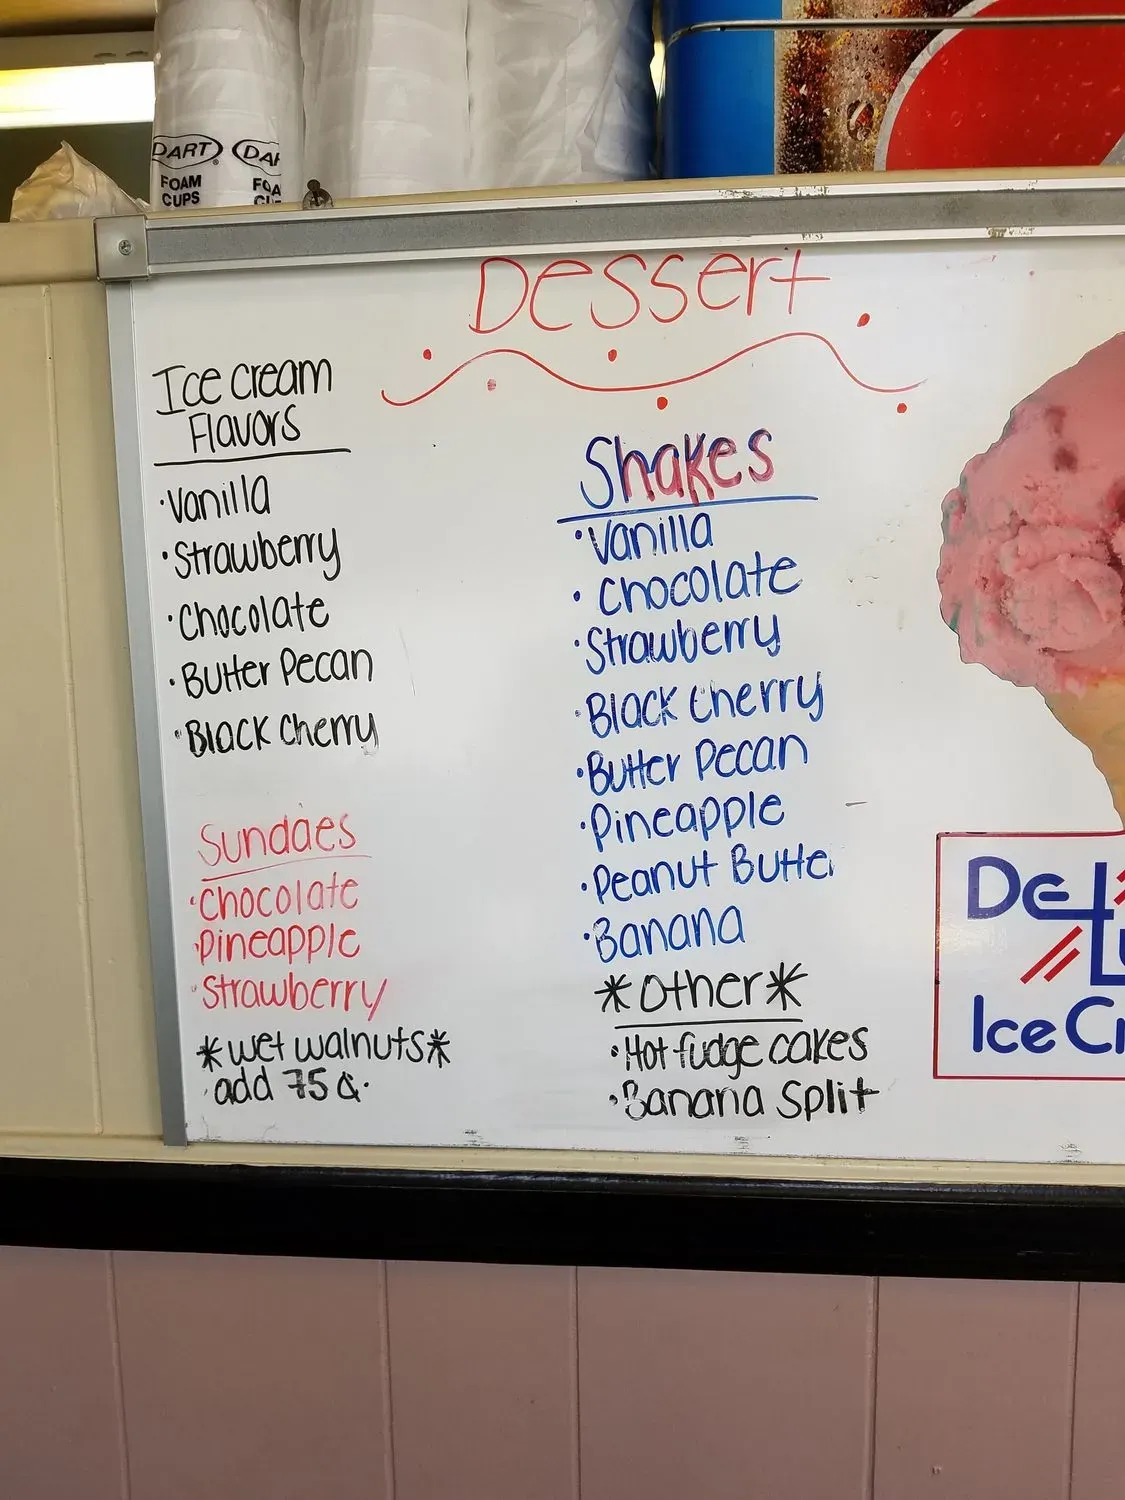 DART DAR
FOAM FOA
CUPS CU
Dessert
Ice cream
Flavors
·Vanilla
·Strawberry
·Chocolate
·Butter Pecan
·Black Cherry
Sundaes
·Chocolate
·Pineapple
·Strawberry
*wet walnuts*
·add 75¢·
Shakes
·Vanilla
·Chocolate
·Strawberry
·Black Cherry
·Butter Pecan
·Pineapple
·Peanut Butter
·Banana
*other*
·Hot fudge cakes
·Banana Split
De
Lu
Ice Cr